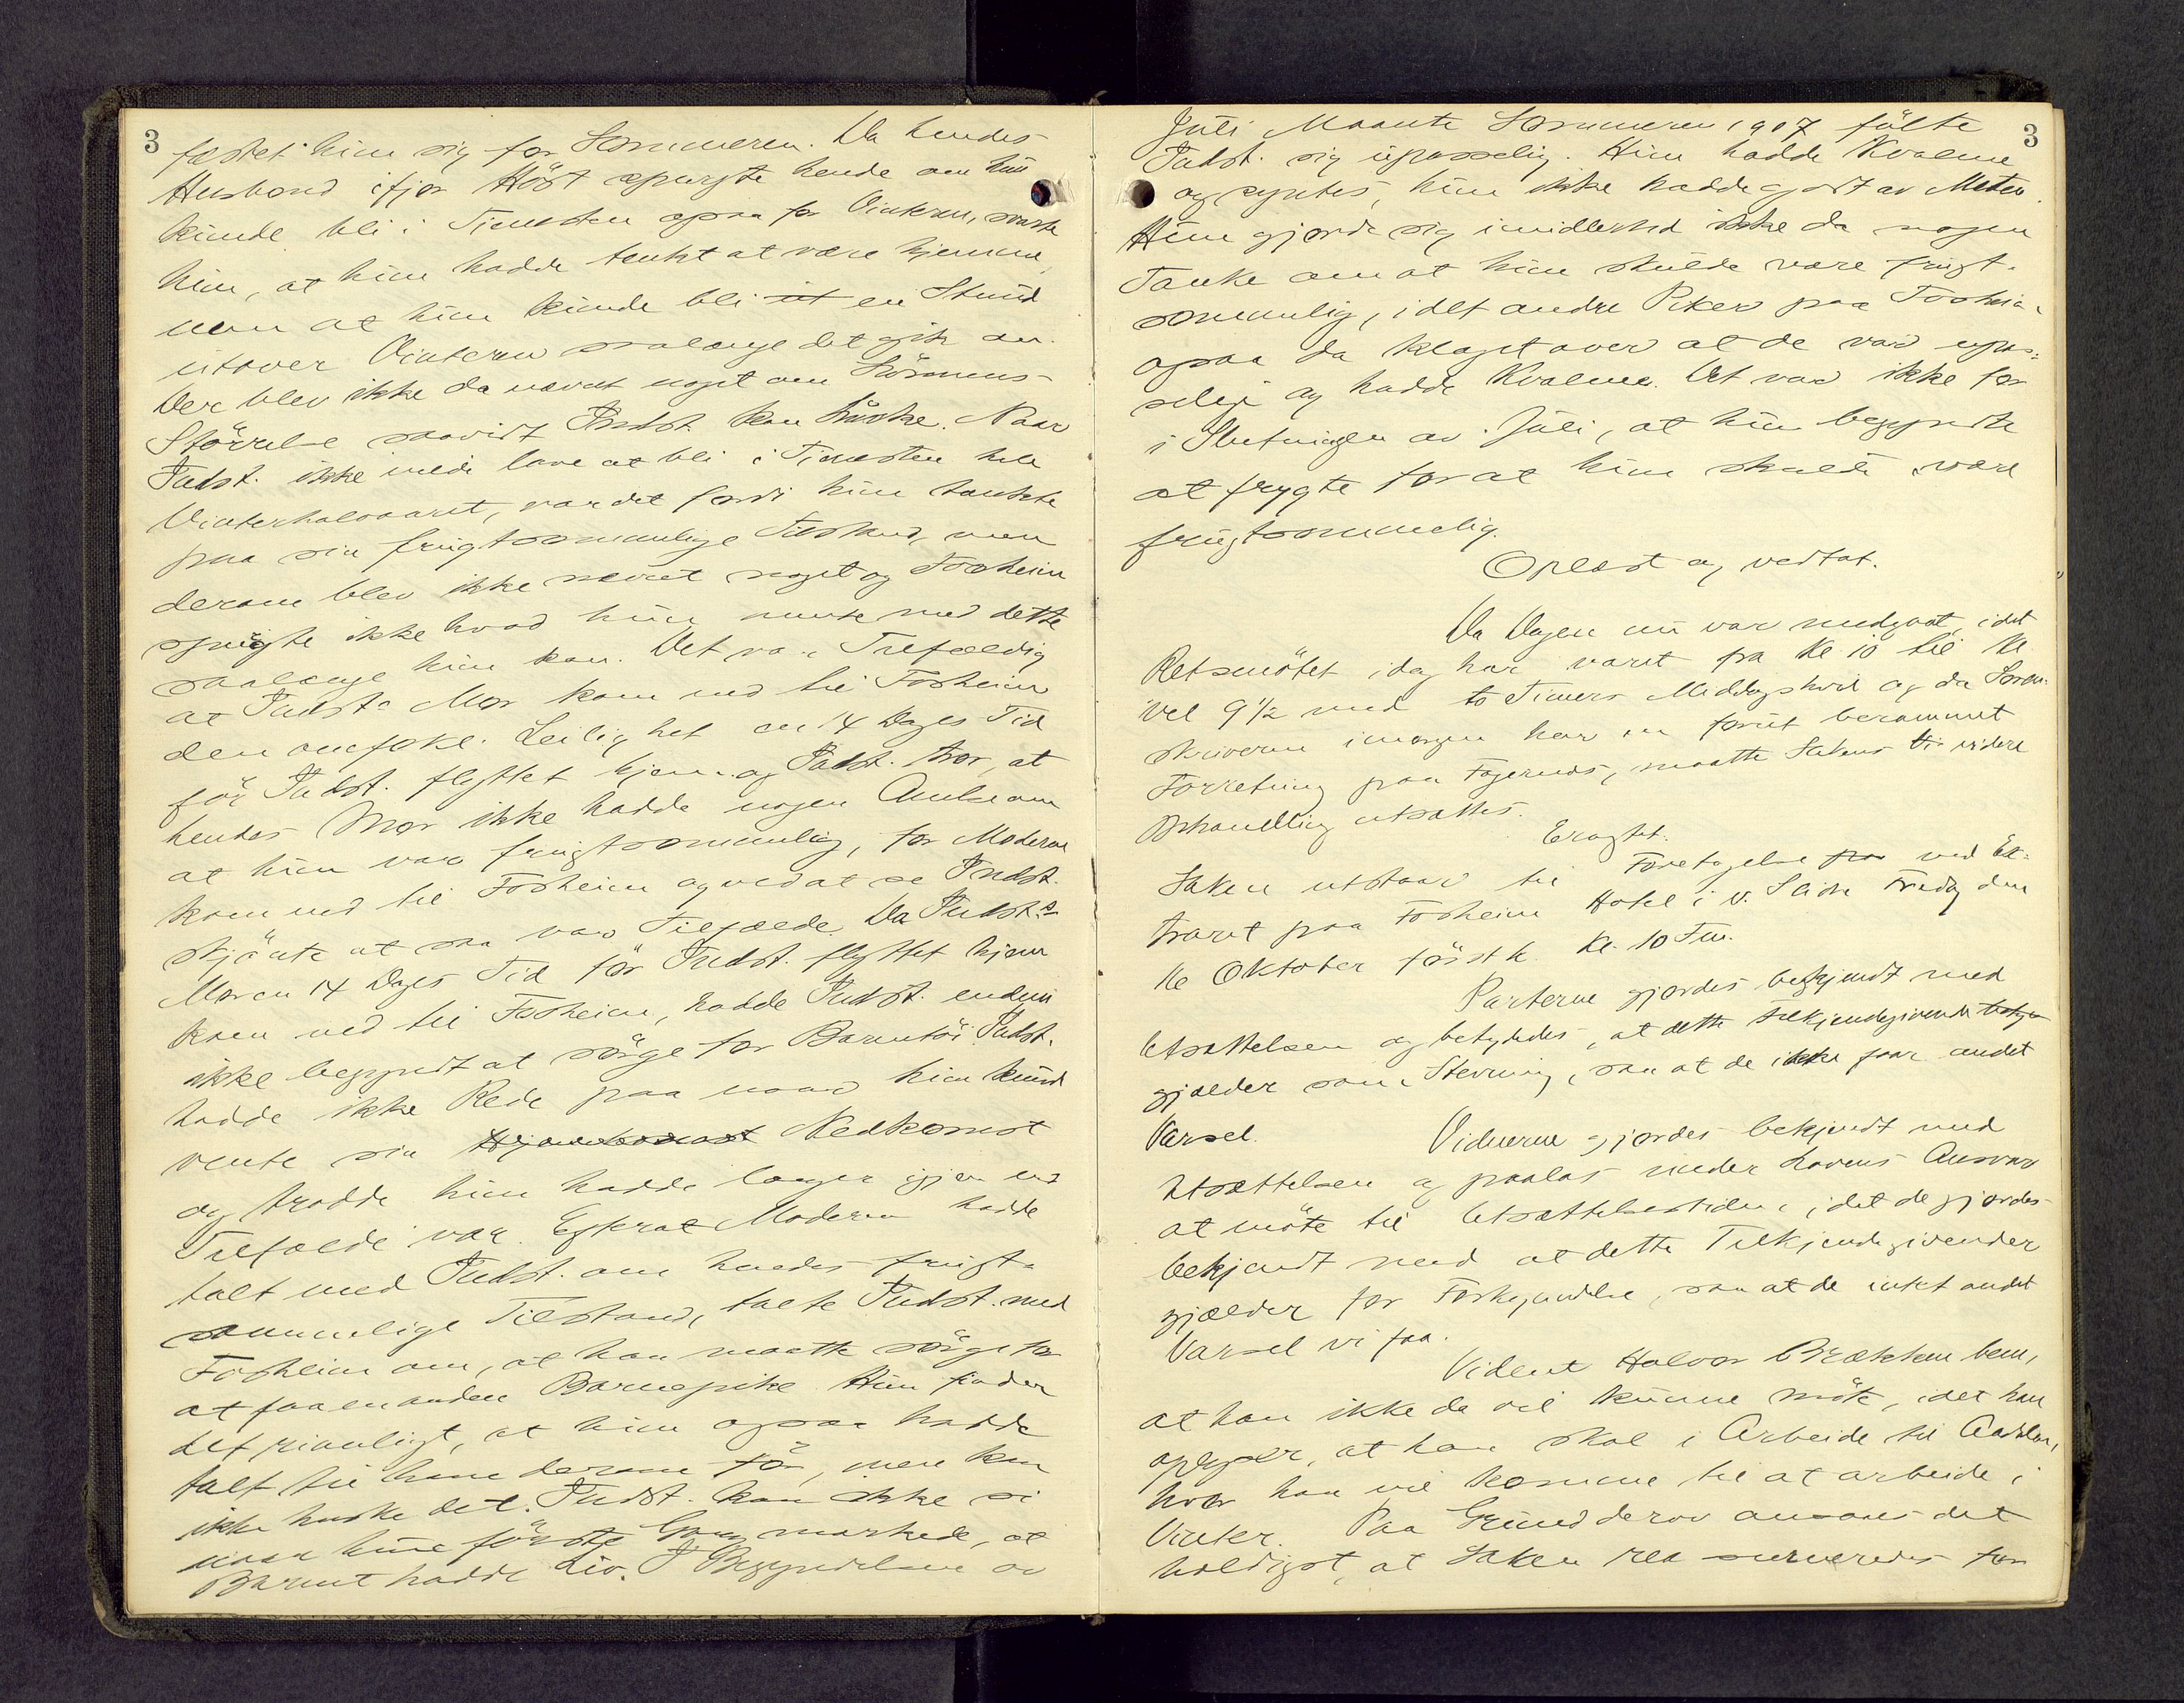 3
fæstet hun sig for Sommeren. Da hendes
Husbond ifjor Høst spurgte hende om hun
kunde bli i Tienesten ogsaa for Vinteren, svarte
hun, at hun hadde tenkt at være hjemme,
men at hun kunde bli en Stund
utover Vinteren saalænge det gik an.
Der blev ikke da nævnt noget om Lønnens
Størrelse saavidt Indst. kan huske. Naar
Indst. ikke vilde love at bli i Tienesten hele
Vinterhalvaaret, var det fordi hun tænkte
paa sin frugtsommelige Tilstand, men
derom blev ikke nævnt noget og Fosheim
spurgte ikke hvad hun mente med dette
saalænge hun kan. Det var Tilfældig
at Indst.s Mor kom ned til Fosheim
den omfokl. Leilighet en 14 Dages Tid
før Indst. flyttet hjem og Indst. tror, at
hendes Mor ikke hadde nogen Anelse om
at hun var frugtsommelig, før Moderen
kom ned til Fosheim og ved at se Indst.
skjønte at saa var Tilfælde. Da Indst.s
Moren 14 Dages Tid før Indst. flyttet hjem
kom ned til Fosheim, hadde Indst. endnu
ikke begyndt at sørge for Barnetøi. Indst.
hadde ikke Rede paa naar hun kunde
vente sin Nedkomst
og trodde hun hadde længer igjen end
Tilfælde var. Efterat Moderen hadde
talt med Indst. om hendes frugt-
sommelige Tilstand, talte Indst. med
Fosheim om, at han maatte sørge for
at faa en anden Barnepike. Hun finder
det rimeligt, at hun ogsaa hadde
talt til ham derom før, men kan
ikke huske det. Indst. kan ikke si
naar hun første Gang merkede, at
Barnet hadde Liv. I Begyndelsen av
3
Juli Maante Sommeren 1907 følte
Indst. sig upasselig. Hun hadde Kvalme
og syntes, hun ikke hadde godt av Maten.
Hun gjorde sig imidlertid ikke da nogen
Tanke om at hun skulde være frugt-
sommelig, idet andre Piker paa Fosheim
ogsaa da klaget over at de var upas-
selige og hadde Kvalme. Det var ikke før
i Slutningen av Juli, at hun begyndte
at frygte for at hun skulde være
frugtsommelig.
Oplæst og vedtat.
Da Dagen nu var medgaat, idet
Retsmøtet idag har varet fra Kl 10 til Kl
vel 9 1/2 med to Timers Middagshvil og da Soren-
skriveren imorgen har en forut berammet
Forretning paa Fagernes, maatte Sakens videre
Behandling utsættes.
Eragtet.
Saken utstaar til Foretagelse ved Ex-
traret paa Fosheim Hotel i V. Slidre Fredag den
Oktober førstk. Kl. 10 Fm.
Parterne gjordes bekjendt med
Utsættelsen og betydedes, at dette Tilkjendegivende
gjælder som Stevning, saa at de ikke faar andet
Varsel.
Vidnerne gjordes bekjendt med
Utsættelsen og paalas under Lovens Ansvar
at møte til Utsættelsestiden, idet de gjordes
bekjendt med at dette Tilkjendegivender
gjælder for Forkyndelse, saa at de intet andet
Varsel vi faa.
Vidnet Halvor Brækken bem,
at han ikke da vil kunne møte, idet han
oplyser, at han skal i Arbeide til
hvor han vil komme til at arbeide i
Vinter. Paa Grund derav ansaas det
heldigst, at Saken